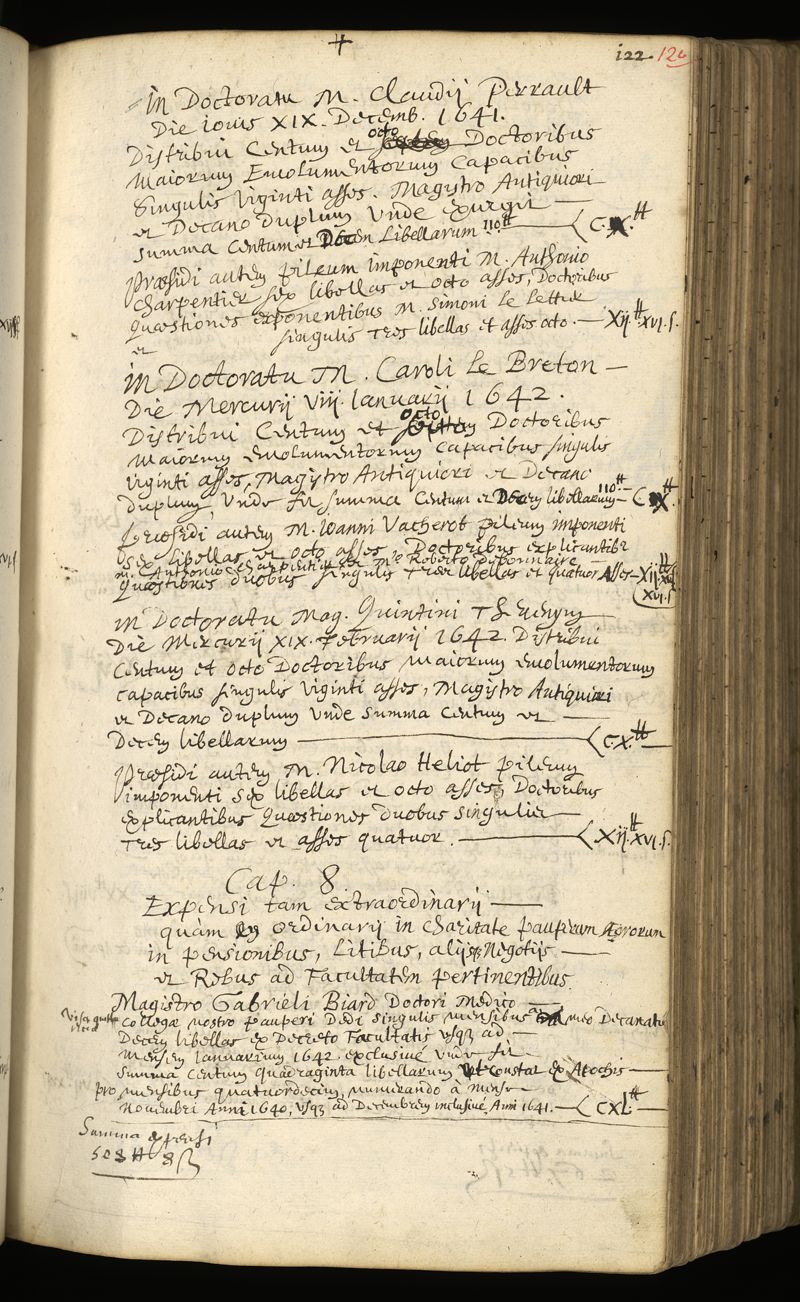 i22. 124
In Doctoratu M. Claudij Perrault
Die iouis XIX. Decemb. 1641.
Distribui Centum et octo Doctoribus
Maiorum Emolumentorum Capacibus
Singulis Viginti asses. Magistro Antiquiori
et Decano duplum Vnde exurgit
Summa Centum et Decem Libellarum 110 ℔ C.X. ℔
Præsidi autem pileum imponenti M. Anthonio
Charpentier sex libellas et octo asses, Doctoribus
Quæstiones exponentibus M. Simoni Le Lettier
et singulis Tres libellas et asses octo. Xij ℔ XVI. s.
In Doctoratu M. Caroli Le Breton
Die Mercurij VIII. Ianuarij 1642.
Distribui Centum et octo Doctoribus
Maiorum emolumentorum Capacibus singulis
viginti asses, Magistro Antiquiori et Decano
duplum, Vnde fit summa Centum et Decem libellarum 110 ℔ C X. ℔
Præsidi autem M. Ioanni Vacherot pileum imponenti
sex libellas et octo asses, Doctoribus explicantib9
M. Anthonio Charpentier et Mo Roberto
Quæstiones duobus singulis Tres libellas et quatuor Asses Xij ℔
XVI. s
In Doctoratu Mag. Quintini Thevenyn
Die Mercurij XIX. Februarij 1642. Distribui
Centum et octo Doctoribus maiorum emolumentorum
capacibus singulis Viginti asses, Magistro Antiquiori
et Decano duplum Vnde summa Centum et
Decem libellarum C.X. ℔
Præsidi autem M. Nicolao Heliot pileum
imponenti sex libellas et octo asses Doctoribus
explicantibus Quæstiones duobus singulis
Tres libellas et asses quatuor. Xij ℔ XVI. s.
Cap. 8.
Expensi tam extraordinarij
quàm ordinarij in charitate pauperum Ægrorum
in pensionibus, Litibus, alijsq Negotijs
et Rebus ad Facultatem pertinentibus
Magistro Gabrieli Biard Doctori Medico
Collegæ nostro pauperi Dedi singulis mensibus meo Decanatu
Decem libellas ex Decreto Facultatis vsq3 ad
Mensem Ianuarium 1642. exclusiuè vnde fit
Summa Centum quadraginta libellarum Vt constat ex Apochis
pro mensibus quatuordecim, numerando à mense
Nouembri Anni 1640, vsq3 ad Decembrem inclusiuè Anni 1641. CXL ℔
Summa expensi
508 ℔ 8 s